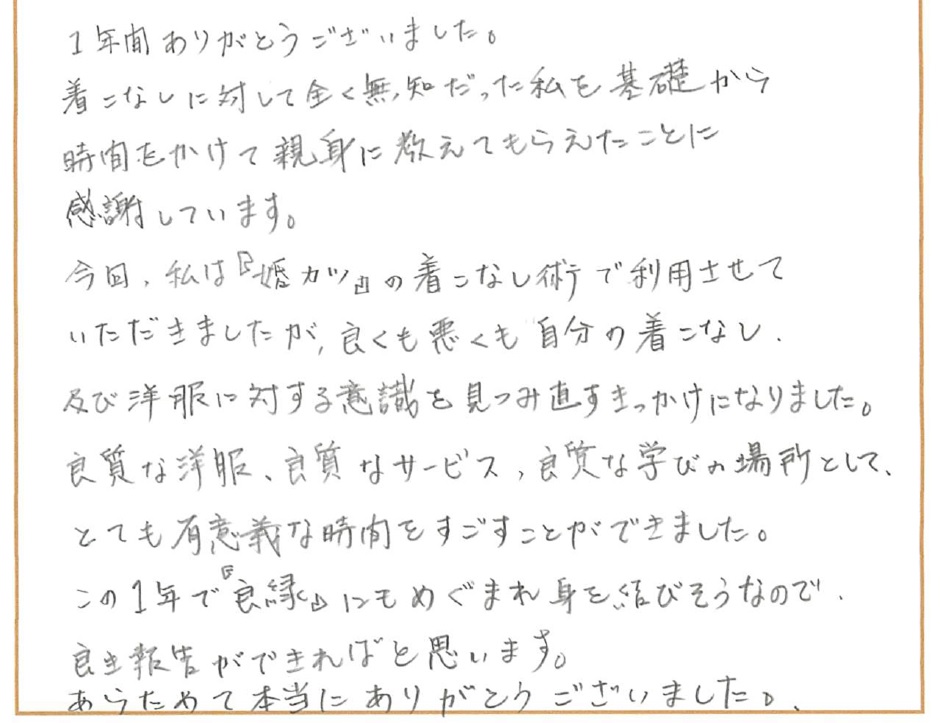 1年間ありがとうございました。
着こなしに対して全く無知だった私を基礎から
時間をかけて親身に教えてもらえたことに
感謝しています。
今回、私は『婚カツ』の着こなし術で利用させて
いただきましたが、良くも悪くも自分の着こなし、
及び洋服に対する意識を見つみ直すきっかけになりました。
良質な洋服、良質なサービス、良質な学びの場所として、
とても有意義な時間をすごすことができました。
この1年で『良縁』にもめぐまれ身を結びそうなので、
良き報告ができればと思います。
あらためて本当にありがとうございました。